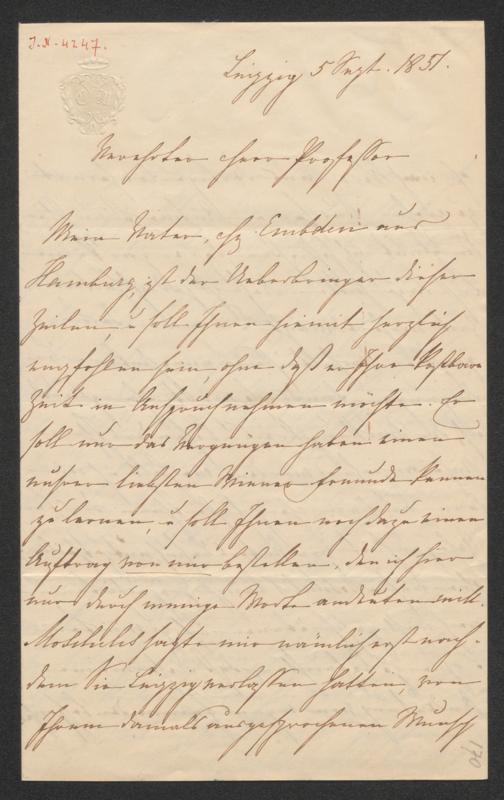 J.N. 4247.
Leipzig 5 Sept. 1851.
Verehrter Herr Professor
Mein Vater, H. Embden aus
Hamburg, ist der Ueberbringer dieser
Zeilen, u soll Ihnen hiemit herzlich
empfohlen sein, ohne daß er Ihre kostbare
Zeit in Anspruch nehmen möchte. Er
soll nur das Vergnügen haben einen
unsrer liebsten Wiener Freunde kennen
zu lernen, u soll Ihnen noch dazu einen
Auftrag von mir bestellen, den ich hier
nur durch wenige Worte andeuten will.
Moscheles sagte mir nämlich erst nach-
dem Sie Leipzig verlassen hatten, von
Ihrem damals ausgesprochenen Wunsch
170